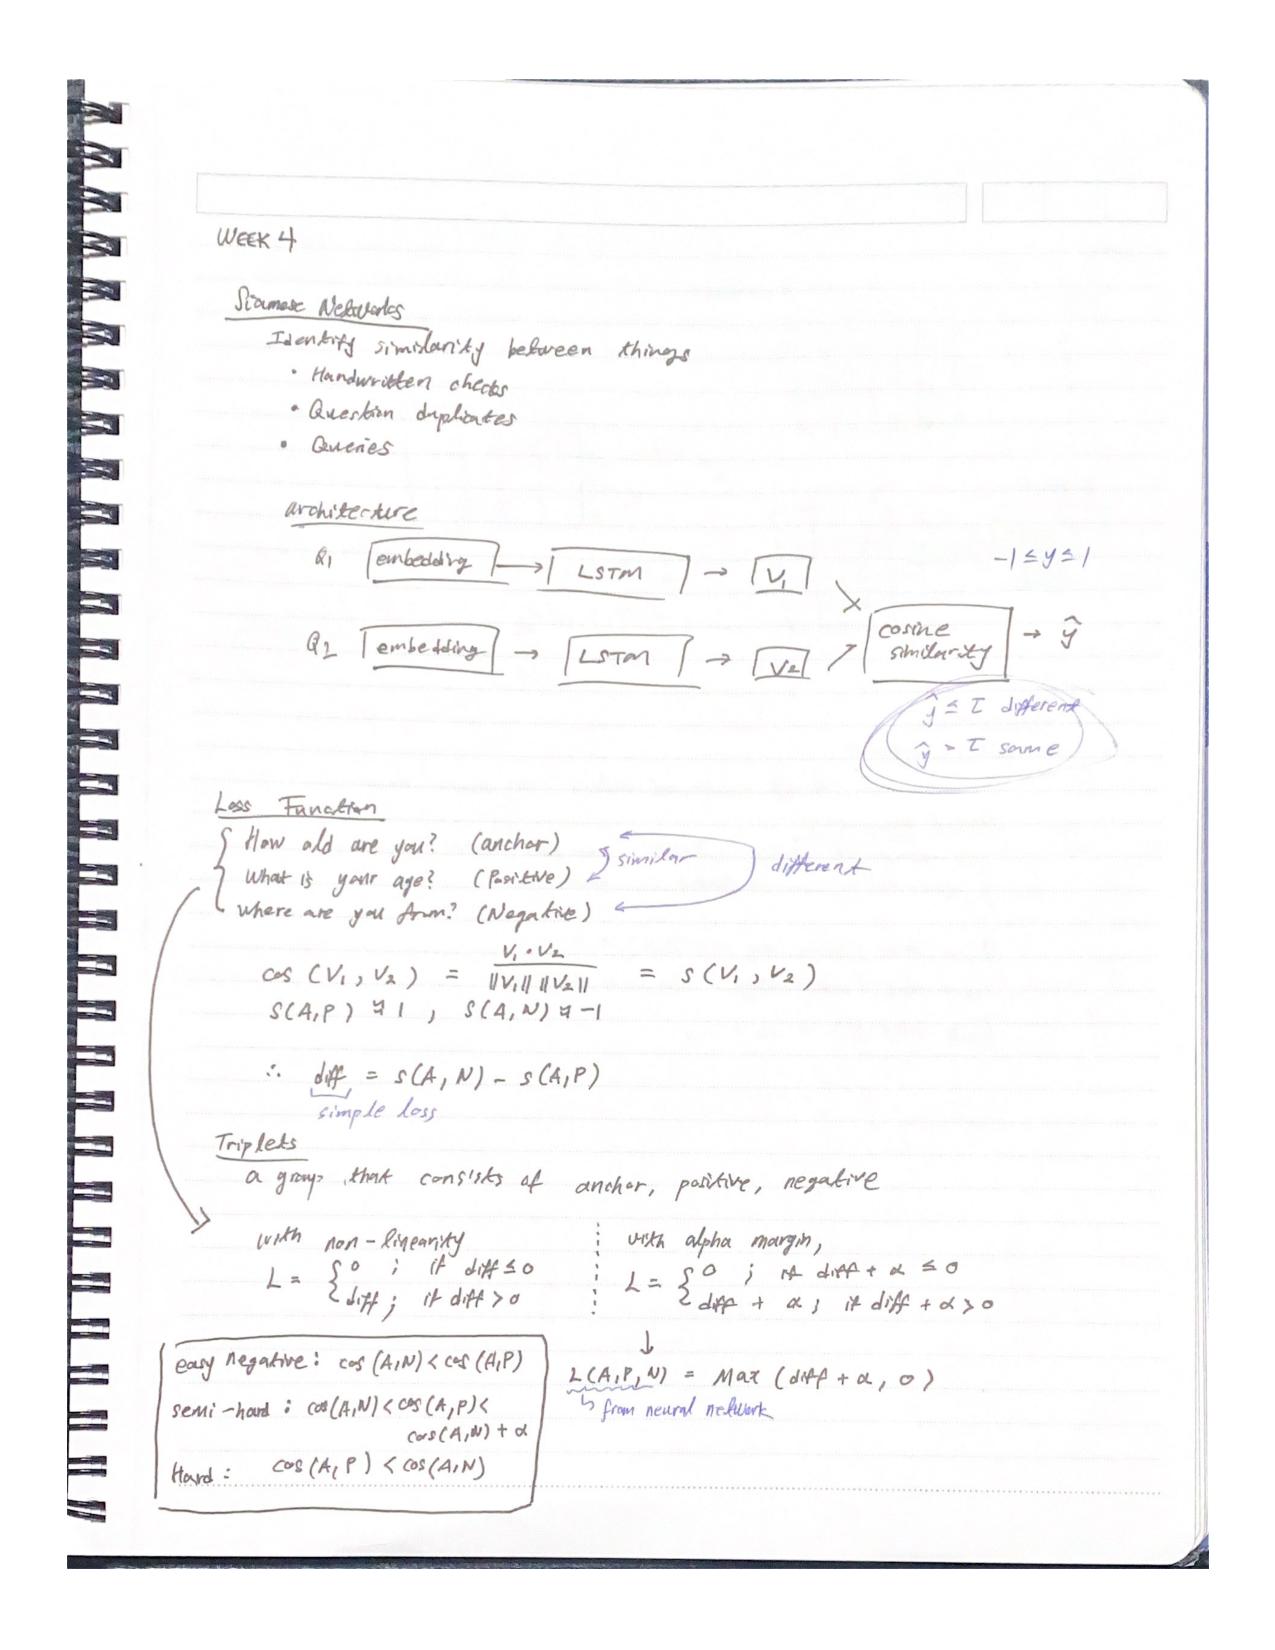 WEEK 4
Siamese Networks
Identify similarity between things
• Handwritten checks
• Question duplicates
• Queries
architecture
Q1 embedding → LSTM → V1
-1 ≤ y ≤ 1
cosine similarity → ŷ
Q2 embedding → LSTM → V2
ŷ ≤ τ different
ŷ > τ same
Loss Function
How old are you? (anchor)
What is your age? (Positive)
where are you from? (Negative)
similar
different
cos (V1, V2) = V1 · V2 / ||V1|| ||V2|| = s(V1, V2)
S(A,P) ≈ 1 , S(A,N) ≈ -1
∴ diff = s(A, N) - s(A,P)
simple loss
Triplets
a group that consists of anchor, positive, negative
with non-linearity
L = { 0 ; if diff ≤ 0
diff ; if diff > 0
with alpha margin,
L = { 0 ; if diff + α ≤ 0
diff + α ; if diff + α > 0
↓
L(A,P,N) = Max (diff + α, 0)
↳ from neural network
easy negative : cos(A,N) < cos(A,P)
semi-hard : cos(A,N) < cos(A,P) <
cos(A,N) + α
Hard : cos(A,P) < cos(A,N)